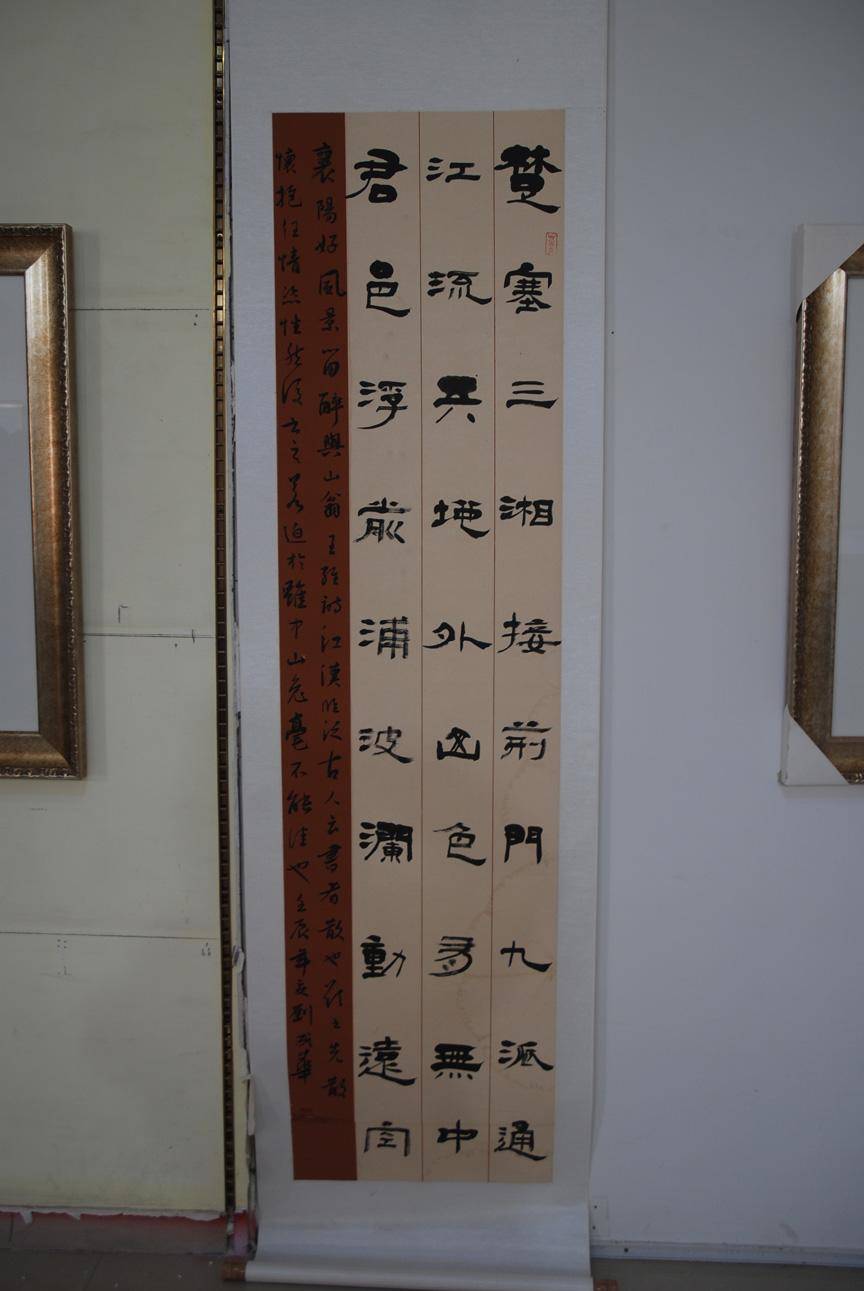 楚塞三湘接荊門九派通
江流天地外山色有無中
君邑浮前浦波瀾動遠空
襄陽好風景留醉與山翁王維詩江漢臨泛古人云書者散也欲書先散
懷抱任情恣性然後書之若迫於雖中山兔毫不能佳也壬辰年夏劉華